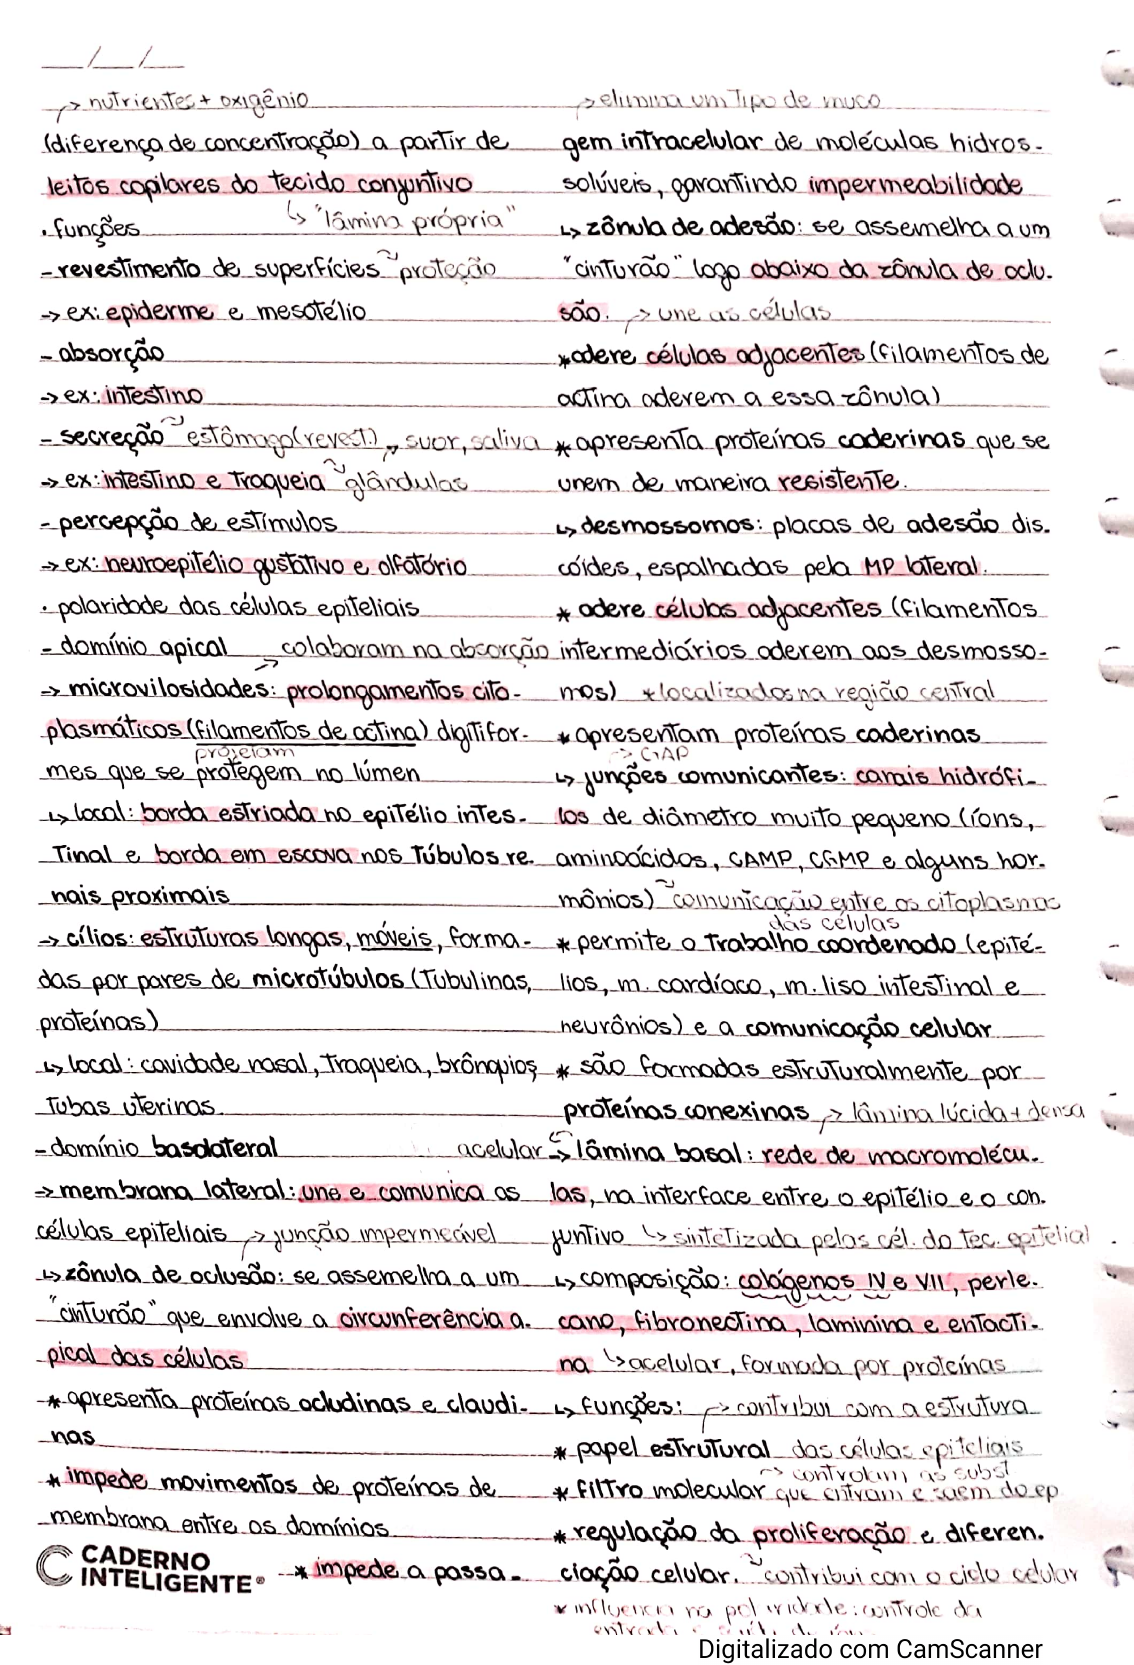 __/__/__
→ nutrientes + oxigênio
(diferença de concentração) a partir de
leitos capilares do tecido conjuntivo
↳ "lâmina própria"
. funções
- revestimento de superfícies ~ proteção
→ ex: epiderme e mesotélio
- absorção
→ ex: intestino
- secreção ~ estômago (revest.) → suor, saliva
→ ex: intestino e traqueia ~ glândulas
- percepção de estímulos
→ ex: neuroepitélio gustativo e olfatório
. polaridade das células epiteliais
- domínio apical → colaboram na absorção
→ microvilosidades: prolongamentos cito-
plasmáticos (filamentos de actina) digitifor-
projetam
mes que se protegem no lúmen
↳ local: borda estriada no epitélio intes-
tinal e borda em escova nos túbulos re-
nais proximais
→ cílios: estruturas longas, móveis, forma-
das por pares de microtúbulos (tubulinas,
proteínas)
↳ local: cavidade nasal, traqueia, brônquios,
tubas uterinas.
- domínio basolateral
→ membrana lateral: une e comunica as
células epiteliais → junção impermeável
↳ zônula de oclusão: se assemelha a um
"cinturão" que envolve a circunferência a-
pical das células
* apresenta proteínas ocludinas e claudi-
nas
* impede movimentos de proteínas de
membrana entre os domínios
CADERNO
INTELIGENTE®
* impede a passa-
→ elimina um tipo de muco
gem intracelular de moléculas hidros-
solúveis, garantindo impermeabilidade
↳ zônula de adesão: se assemelha a um
"cinturão" logo abaixo da zônula de oclu-
são. → une as células
* adere células adjacentes (filamentos de
actina aderem a essa zônula)
* apresenta proteínas caderinas que se
unem de maneira resistente.
↳ desmossomos: placas de adesão dis-
cóides, espalhadas pela MP lateral.
* adere células adjacentes (filamentos
intermediários aderem aos desmosso-
mos) * localizados na região central
* apresentam proteínas caderinas
→ GAP
↳ junções comunicantes: canais hidrófi-
los de diâmetro muito pequeno (íons,
aminoácidos, CAMP, CGMP e alguns hor-
mônios) ~ comunicação entre os citoplasmas
das células
* permite o trabalho coordenado (epité-
lios, m. cardíaco, m. liso intestinal e
neurônios) e a comunicação celular
* são formadas estruturalmente por
proteínas conexinas → lâmina lúcida + densa
acelular → lâmina basal: rede de macromolécu-
las, na interface entre o epitélio e o con-
juntivo ↳ sintetizada pelas cél. do tec. epitelial
↳ composição: colágenos IV e VII, perle-
cano, fibronectina, laminina e entacti-
na ↳ acelular, formada por proteínas
↳ funções: → contribui com a estrutura
* papel estrutural das células epiteliais
→ controlam as subst
* filtro molecular que entram e saem do ep
* regulação da proliferação e diferen-
ciação celular. ~ contribui com o ciclo celular
* influencia na polaridade: controle da
entrada e saída de íons
Digitalizado com CamScanner